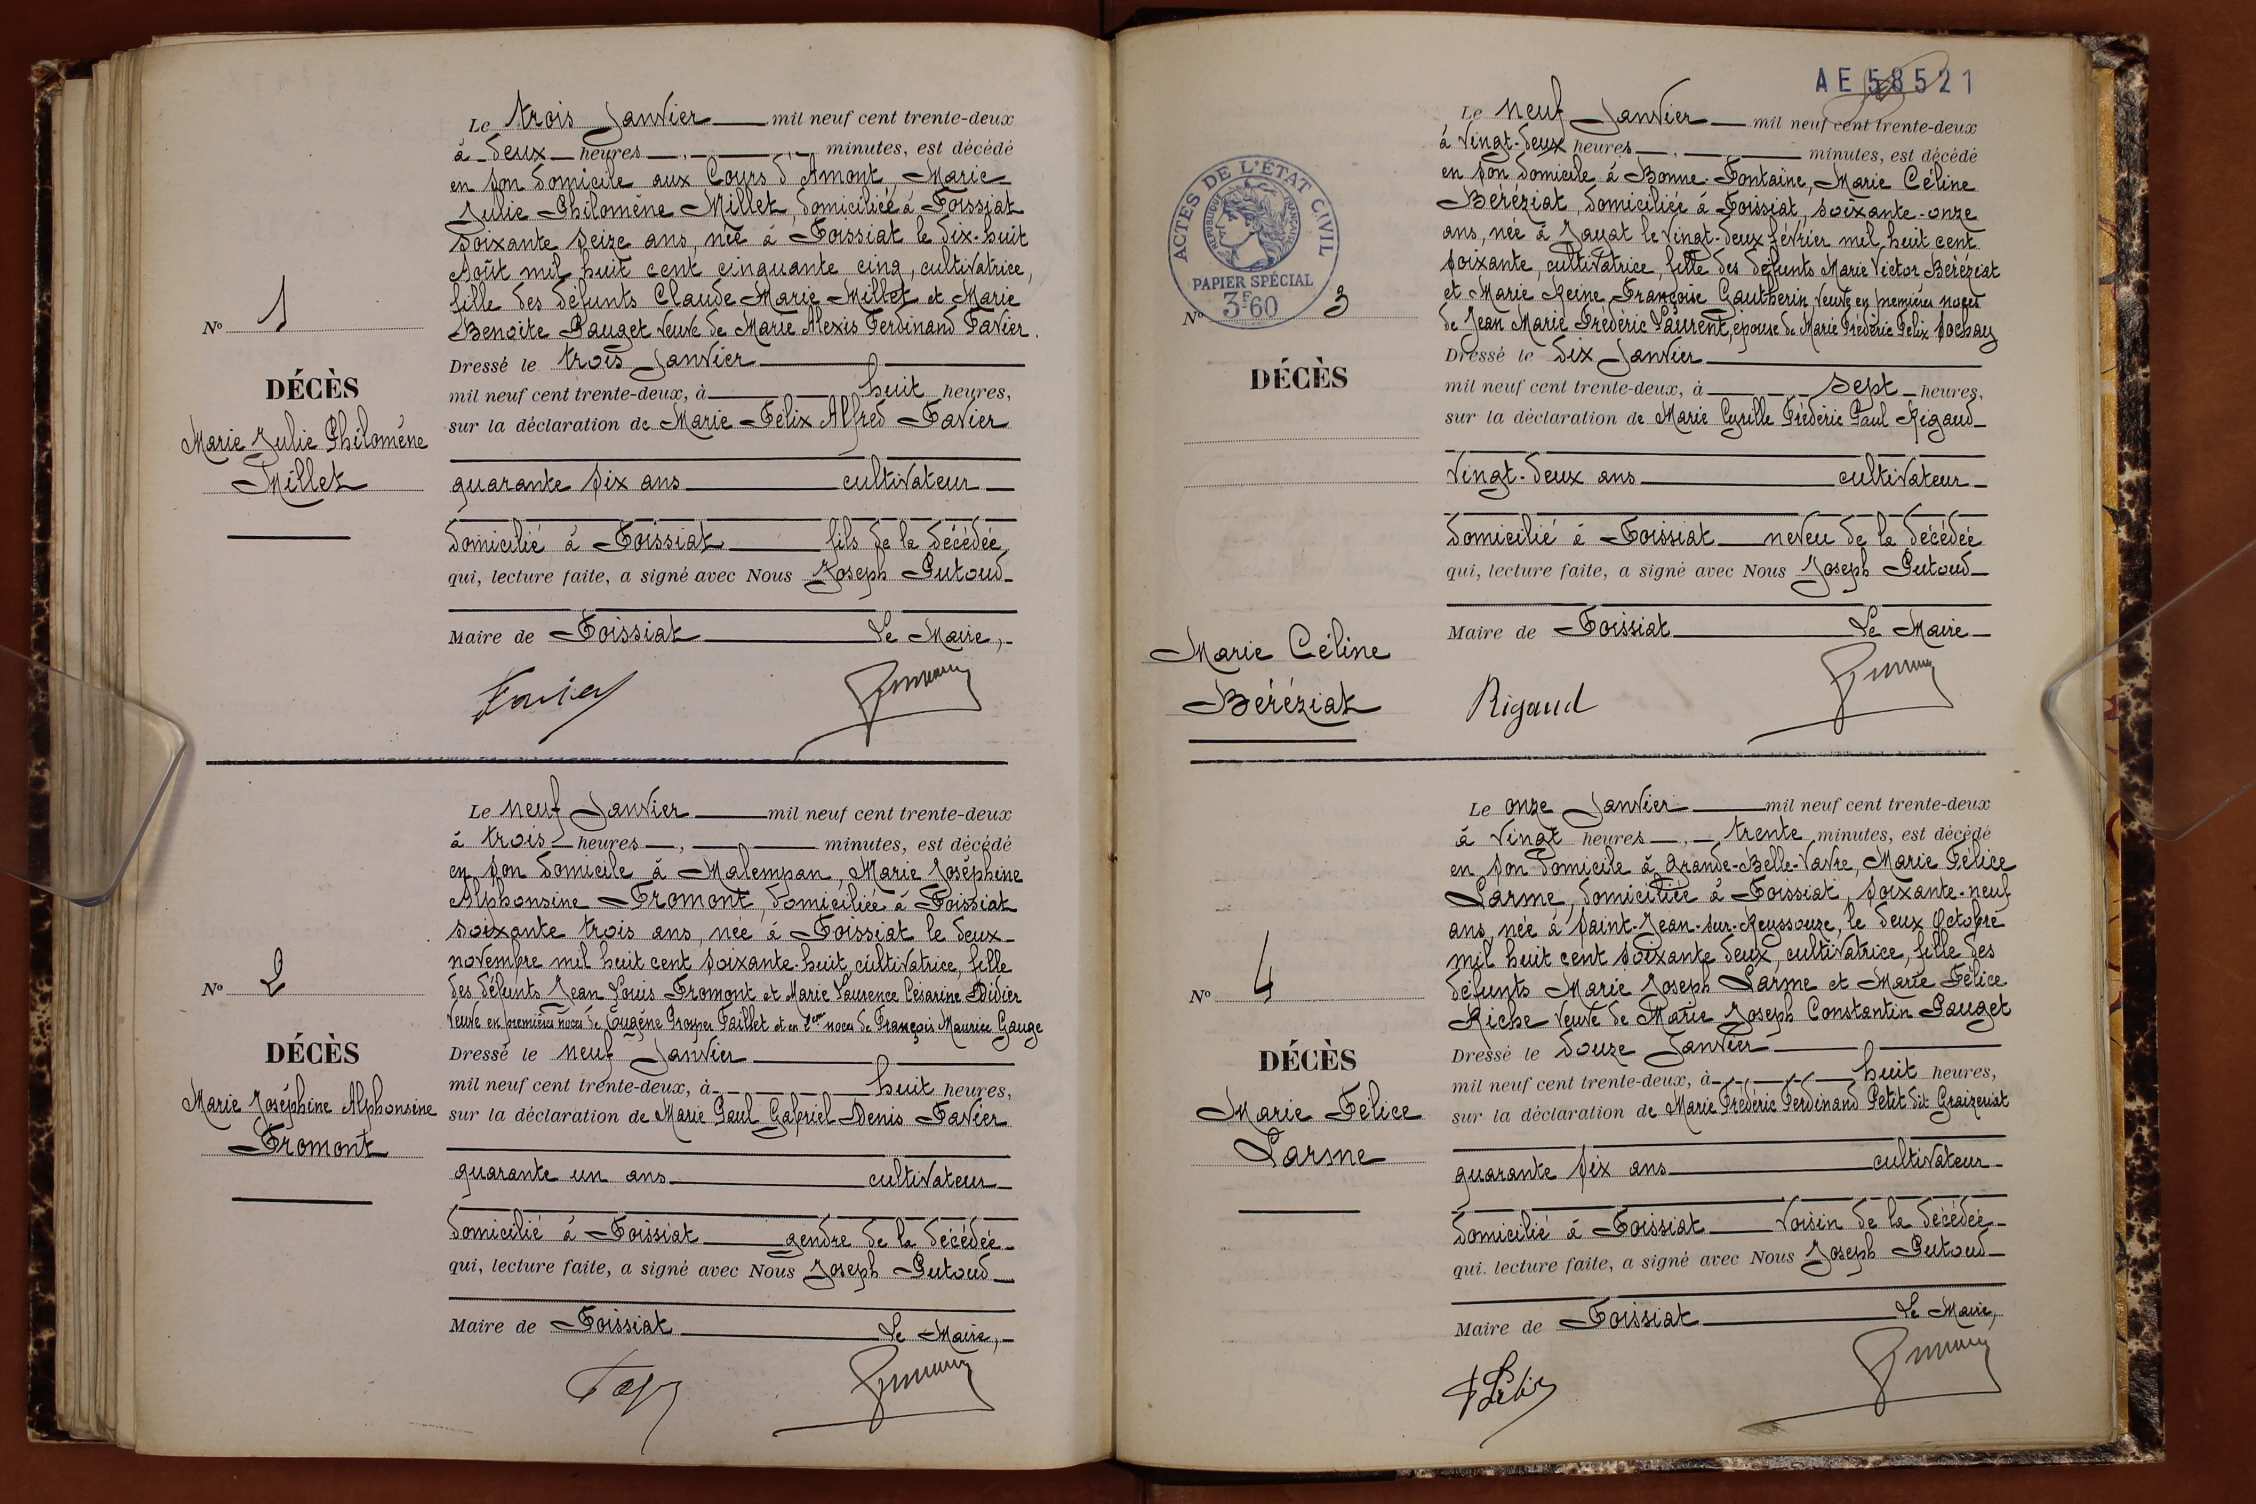 Le trois Janvier mil neuf cent trente-deux
à deux heures minutes, est décédé
en son domicile aux Cours d'Amont, Marie
Julie Philomène Millet, domiciliée à Foissiat
soixante seize ans, née à Foissiat le dix-huit
Août mil huit cent cinquante cinq, cultivatrice,
fille des défunts Claude Marie Millet et Marie
Benoite Pauget veuve de Marie Alexis Ferdinand Favier.
Nº 1
DÉCÈS
Marie Julie Philomène
Millet
Dressé le trois Janvier
mil neuf cent trente-deux, à huit heures,
sur la déclaration de Marie Félix Alfred Favier
quarante six ans cultivateur
domicilié à Foissiat fils de la décédée
qui, lecture faite, a signé avec Nous Joseph Putoud
Maire de Foissiat Le Maire,
Favier
Le neuf Janvier mil neuf cent trente-deux
à trois heures, minutes, est décédé
en son domicile à Malempan, Marie Joséphine
Alphonsine Fromont, domiciliée à Foissiat
soixante trois ans, née à Foissiat le deux
novembre mil huit cent soixante-huit, cultivatrice, fille
des défunts Jean Louis Fromont et Marie Laurence Césarine Didier
Veuve en premières noces de Eugène Prosper Faillet et en 2èmes noces de François Maurice Gauge
Nº 2
DÉCÈS
Marie Joséphine Alphonsine
Fromont
Dressé le neuf Janvier
mil neuf cent trente-deux, à huit heures,
sur la déclaration de Marie Paul Gabriel Denis Favier
quarante un ans cultivateur
domicilié à Foissiat gendre de la décédée
qui, lecture faite, a signé avec Nous Joseph Putoud
Maire de Foissiat Le Maire,
AE 58521
Le neuf Janvier mil neuf cent trente-deux
à vingt-deux heures minutes, est décédé
en son domicile à Bonne-Fontaine, Marie Céline
Béréziat, domiciliée à Foissiat, soixante-onze
ans, née à Jayat le vingt-deux février mil huit cent
soixante, cultivatrice, fille des défunts Marie Victor Béréziat
et Marie Reine Françoise Gautherin veuve en premières noces
de Jean Marie Frédéric Laurent, épouse de Marie Frédéric Félix Sochay
ACTES DE L'ÉTAT CIVIL
RÉPUBLIQUE FRANÇAISE
PAPIER SPÉCIAL
3F60
Nº 3
DÉCÈS
Marie Céline
Béréziat
Dressé le dix Janvier
mil neuf cent trente-deux, à sept heures,
sur la déclaration de Marie Cyrille Frédéric Paul Rigaud
vingt-deux ans cultivateur
domicilié à Foissiat neveu de la décédée
qui, lecture faite, a signé avec Nous Joseph Putoud
Maire de Foissiat Le Maire
Rigaud
Le onze Janvier mil neuf cent trente-deux
à vingt heures, trente minutes, est décédé
en son domicile à Grande-Belle-Vavre, Marie Félice
Larme, domiciliée à Foissiat, soixante-neuf
ans, née à Saint-Jean-sur-Reyssouze, le deux Octobre
mil huit cent soixante deux, cultivatrice, fille des
défunts Marie Joseph Larme et Marie Félice
Riche veuve de Marie Joseph Constantin Pauget
Nº 4
DÉCÈS
Marie Félice
Larme
Dressé le douze Janvier
mil neuf cent trente-deux, à huit heures,
sur la déclaration de Marie Frédéric Ferdinand Petit dit Graizeriat
quarante six ans cultivateur
domicilié à Foissiat voisin de la décédée
qui. lecture faite, a signé avec Nous Joseph Putoud
Maire de Foissiat Le Maire,